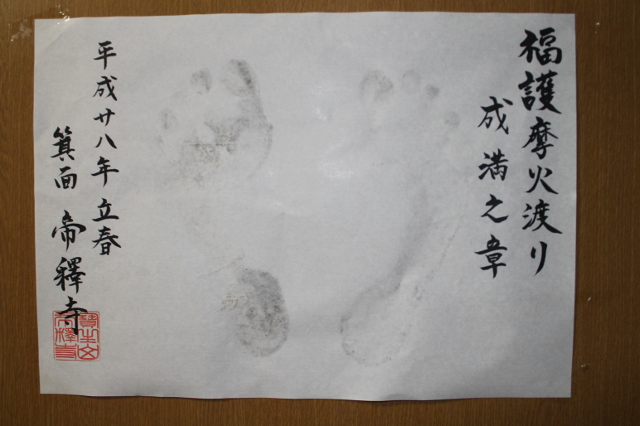 福護摩火渡り
成満之章
平成廿八年立春
箕面 帝釋寺